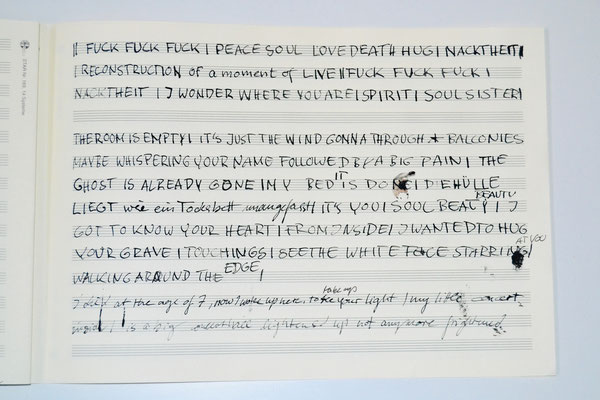 STAR Nr. 180, 14 Systeme
|| FUCK FUCK FUCK | PEACE SOUL LOVE DEATH HUG | NACKTHEIT |
| RECONSTRUCTION of a moment of LIVE || FUCK FUCK FUCK |
NACKTHEIT | I WONDER WHERE YOU ARE | SPIRIT | SOULSISTER |
THE ROOM IS EMPTY | IT'S JUST THE WIND GONNA THROUGH BALCONIES
MAYBE WHISPERING YOUR NAME FOLLOWED BY A BIG PAIN | THE
GHOST IS ALREADY GONE IN MY BED IT IS DONE | DIE HÜLLE
LIEGT wie ein Totesbett unangefasst | IT'S YOU | SOUL BEAUTY BEAUTY | I
GOT TO KNOW YOUR HEART | FROM INSIDE | I WANTED TO HUG
YOUR GRAVE | TOUCHINGS | I SEE THE WHITE FACE STARRING AT YOU |
WALKING AROUND THE EDGE |
I died at the age of 7, now I wake up here, to take up your light | my little
inside | is a big lightened up not anymore frightened